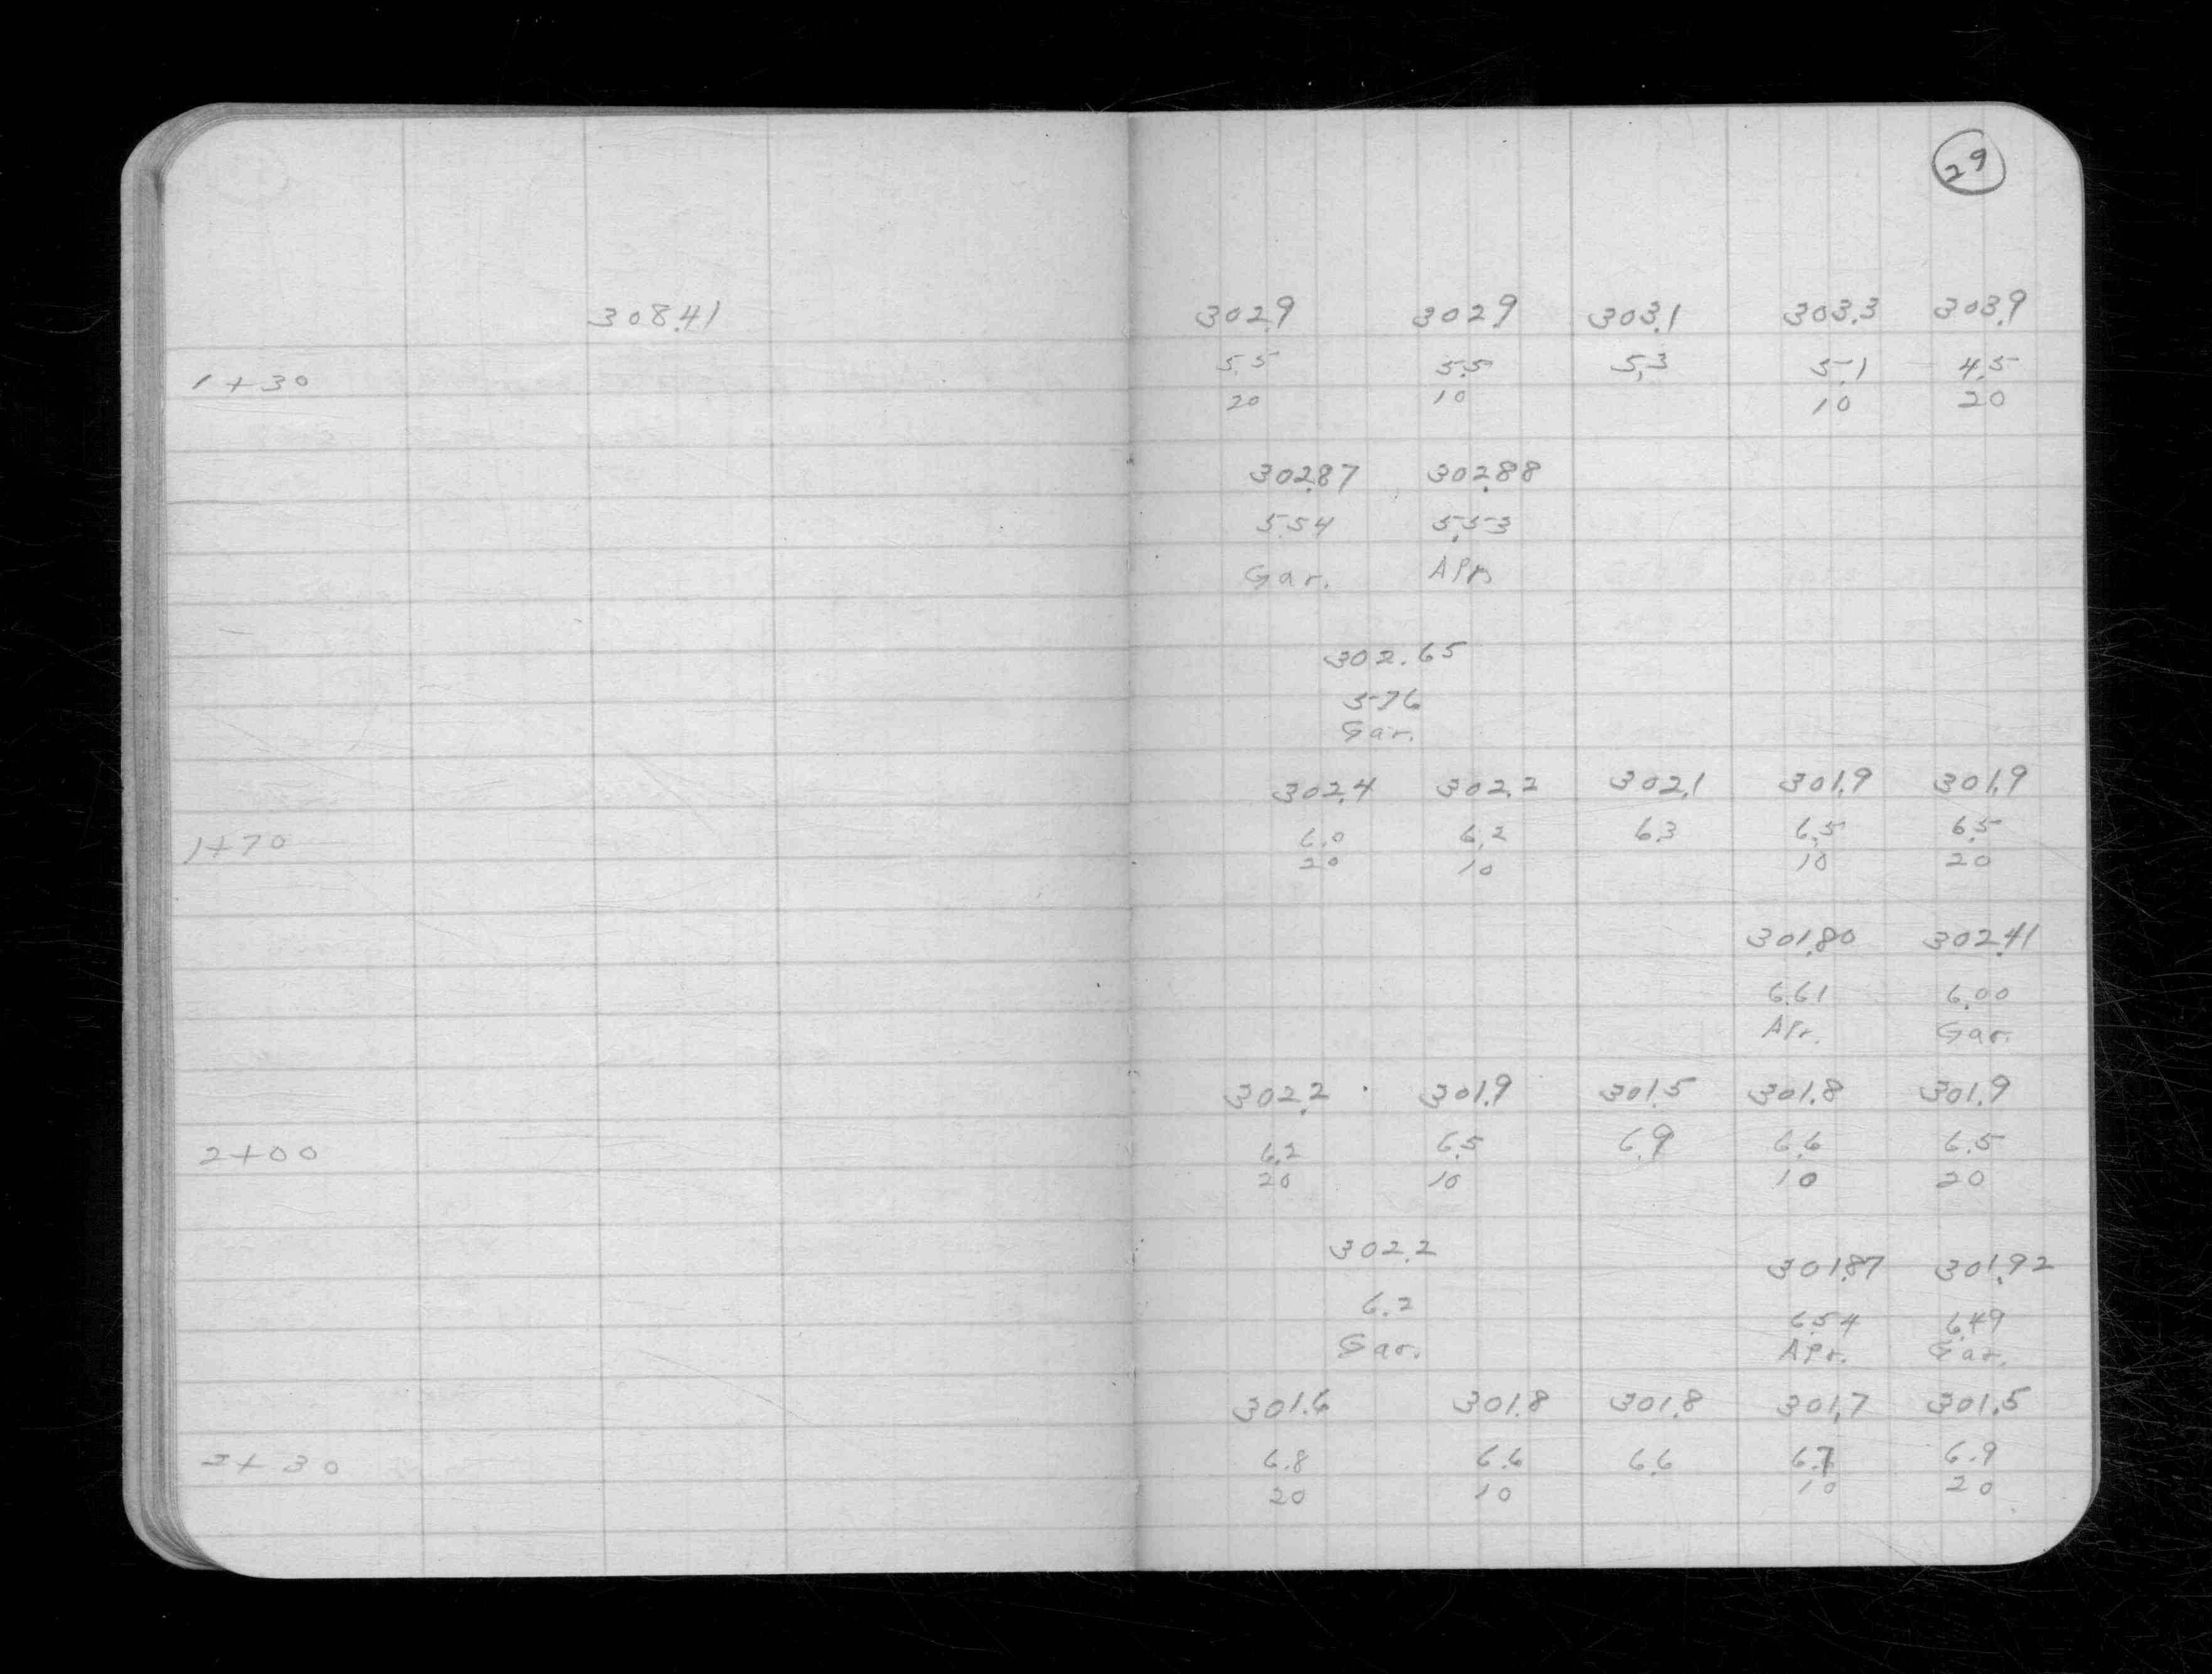 29
308.41 302.9 302.9 303.1 303.3 303.9
1+30 5.5 5.5 5.3 5.1 4.5
20 10 10 20
302.87 302.88
5.54 5.53
Gar. Apr.
302.65
5.76
Gar.
302.4 302.2 302.1 301.9 301.9
1+70 6.0 6.2 6.3 6.5 6.5
20 10 10 20
301.80 302.41
6.61 6.00
Apr. Gar.
302.2 301.9 301.5 301.8 301.9
2+00 6.2 6.5 6.9 6.6 6.5
20 10 10 20
302.2 301.87 301.92
6.2 6.54 6.49
Gar. Apr. Gar.
301.6 301.8 301.8 301.7 301.5
2+30 6.8 6.6 6.6 6.7 6.9
20 10 10 20